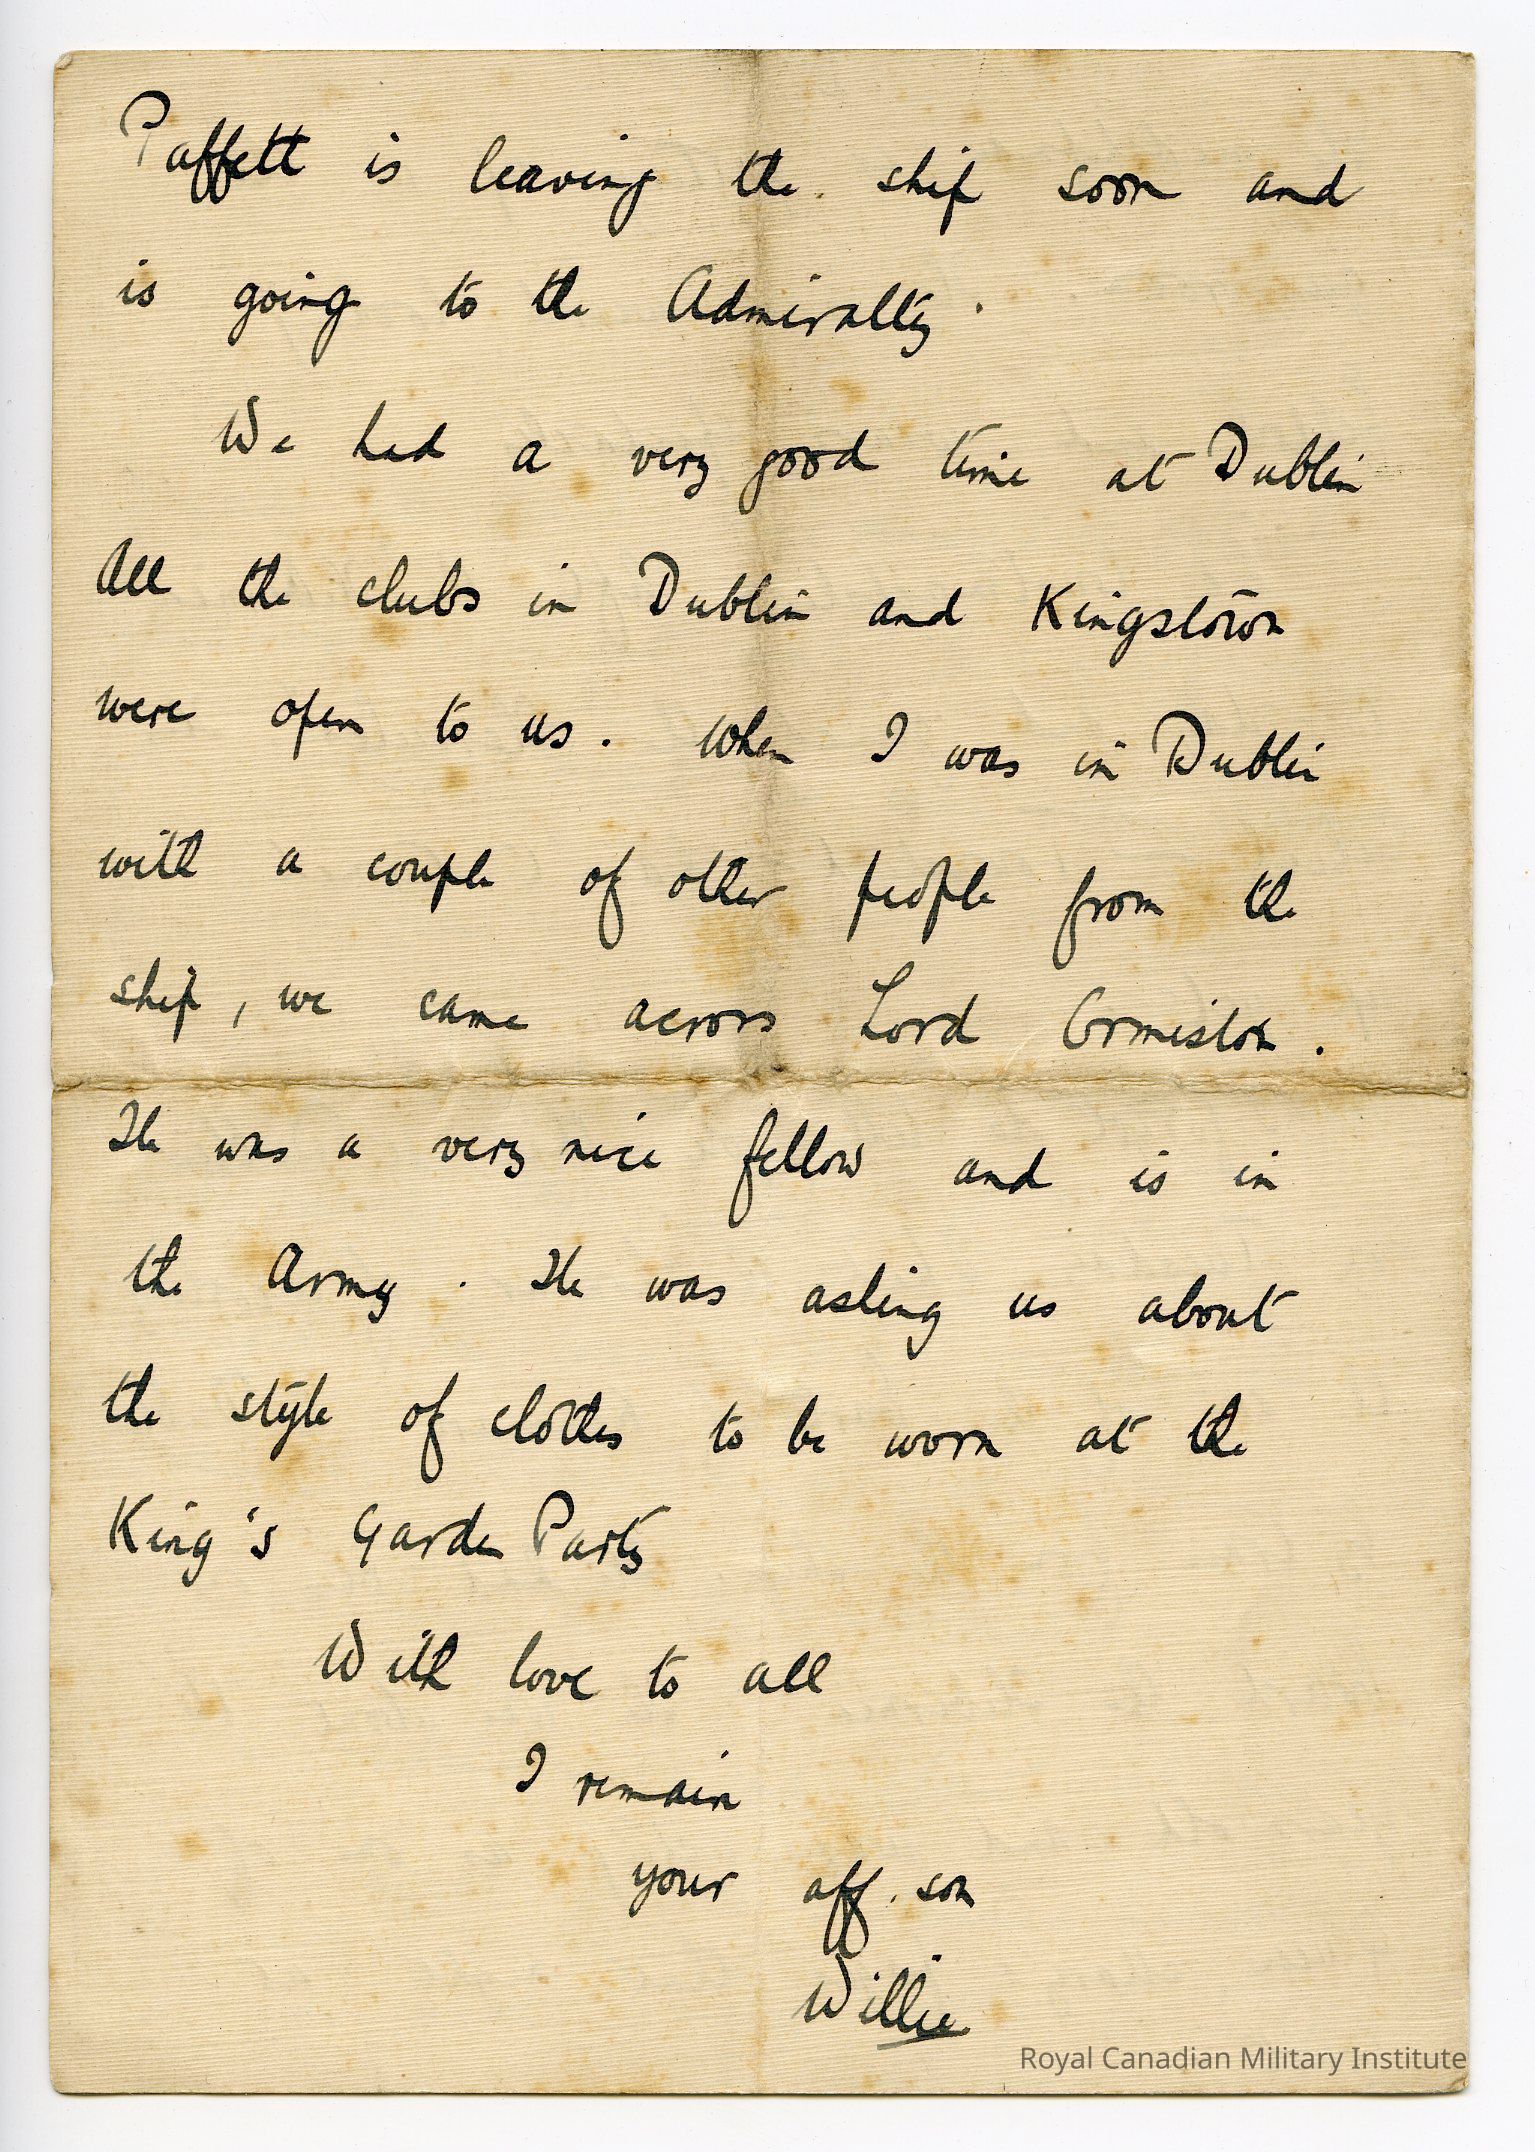 Paffett is leaving the ship soon and
is going to the Admiralty.
We had a very good time at Dublin
All the clubs in Dublin and Kingstown
were open to us. When I was in Dublin
with a couple of other people from the
ship, we came across Lord Ormiston.
He was a very nice fellow and is in
the Army. He was asking us about
the style of clothes to be worn at the
King's Garden Party
With love to all
I remain
your aff. son
Willie
Royal Canadian Military Institute